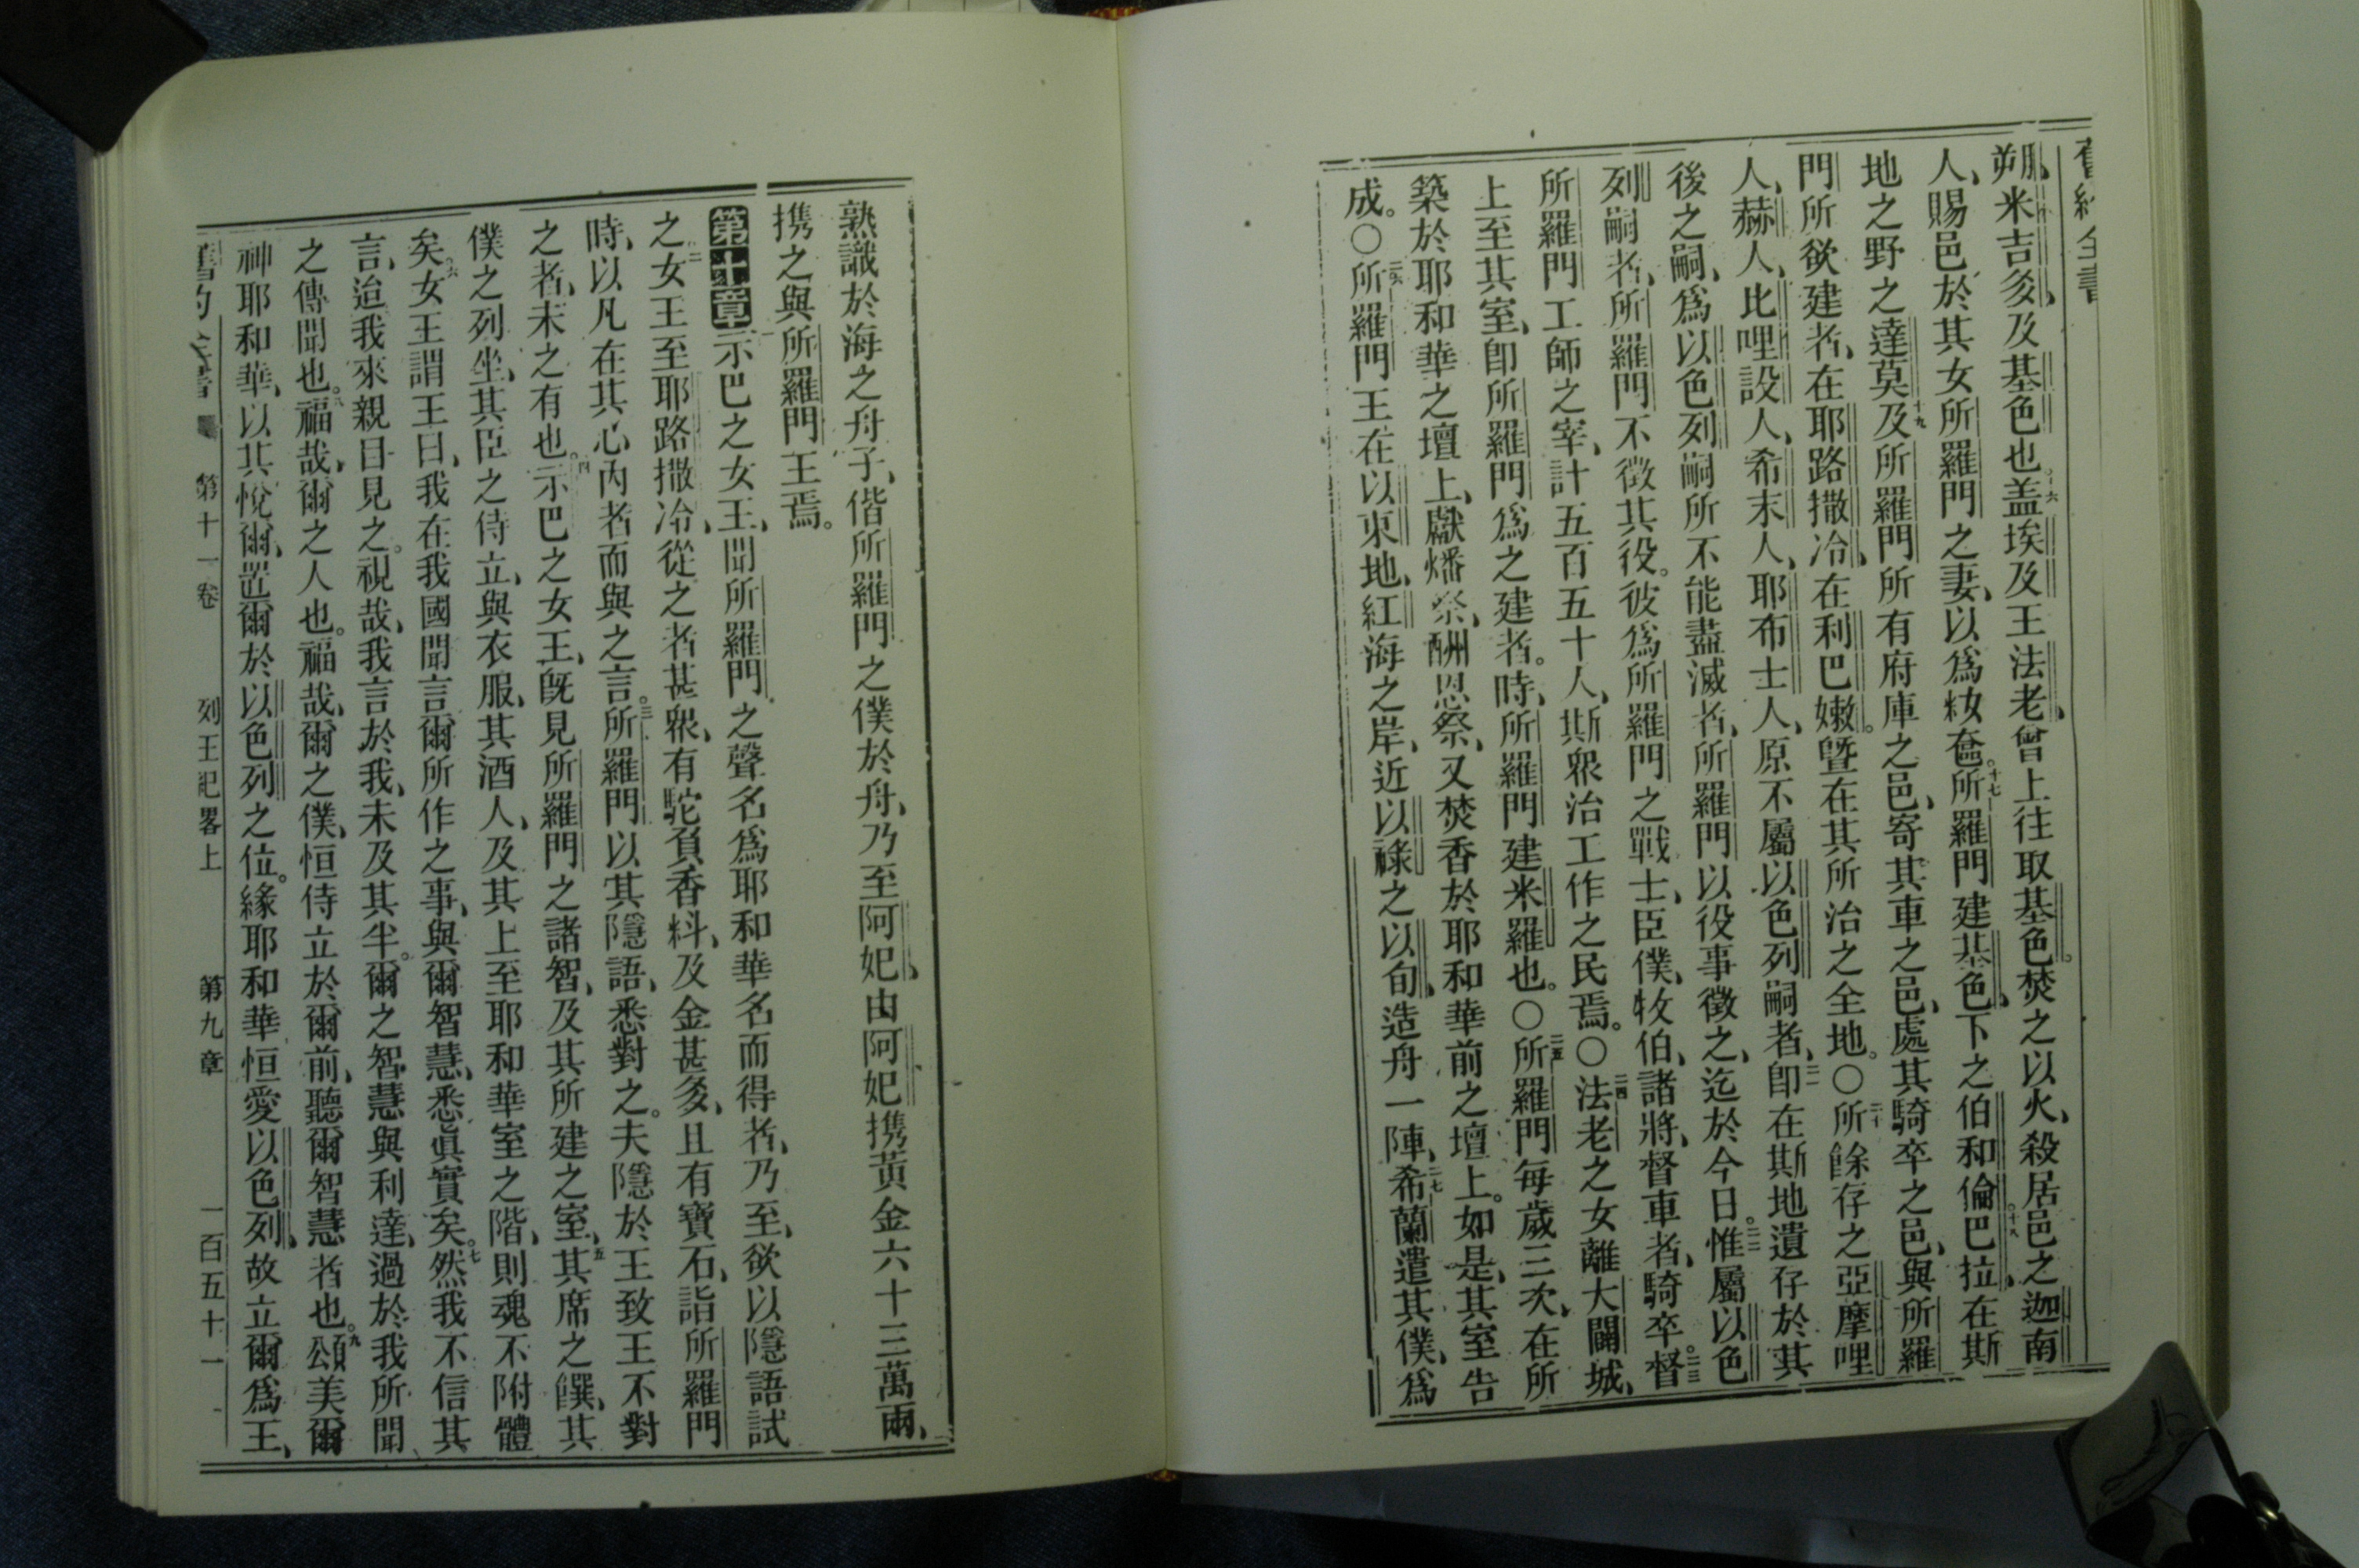 舊約全書
朔、米吉多、及基色也。十六盖埃及王法老、曾上往取基色。焚之以火、殺居邑之迦南
人、賜邑於其女所羅門之妻、以爲籹奩。十七所羅門建基色、下之伯和倫、十八巴拉、在斯
地之野之達莫、十九及所羅門所有府庫之邑、寄其車之邑、處其騎卒之邑、與所羅
門所欲建者、在耶路撒冷、在利巴嫩。曁在其所治之全地。〇二十所餘存之亞摩哩
人、赫人、比哩設人、希末人、耶布士人、原不屬以色列嗣者、二一卽在斯地遺存於其
後之嗣、爲以色列嗣所不能盡滅者、所羅門以役事徵之、迄於今日。二二惟屬以色
列嗣者、所羅門不徵其役。彼爲所羅門之戰士、臣僕、牧伯、諸將、督車者、騎卒。二三督
所羅門工師之宰、計五百五十人、斯衆治工作之民焉。〇二四法老之女離大闢城、
上至其室、卽所羅門爲之建者。時、所羅門建米羅也。〇二五所羅門每歲三次、在所
築於耶和華之壇上、獻燔祭、酬恩祭、又焚香於耶和華前之壇上。如是、其室告
成。〇二六所羅門王在以東地、紅海之岸、近以祿之以旬、造舟一陣、二七希蘭遣其僕、爲
熟識於海之舟子、偕所羅門之僕於舟、乃至阿妃、由阿妃携黃金六十三萬兩、
携之與所羅門王焉。
第十章一示巴之女王、聞所羅門之聲名爲耶和華名而得者、乃至、欲以隱語試
之二女王至耶路撒冷、從之者甚衆、有駝負香料、及金甚多、且有寶石、詣所羅門
時、以凡在其心內者而與之言。三所羅門以其隱語、悉對之。夫隱於王致王不對
之者、未之有也。四示巴之女王、旣見所羅門之諸智、及其所建之室、五其席之饌、其
僕之列坐、其臣之侍立、與衣服、其酒人、及其上至耶和華室之階、則魂不附體
矣。六女王謂王曰、我在我國聞言爾所作之事、與爾智慧、悉眞實矣。七然我不信其
言、迨我來親目見之。視哉、我言於我、未及其半。爾之智慧與利達、過於我所聞
之傳聞也。八福哉、爾之人也。福哉、爾之僕、恒侍立於爾前、聽爾智慧者也。九頌美爾
神耶和華、以其悅爾、置爾於以色列之位。緣耶和華恒愛以色列、故立爾爲王、
舊約全書 第十一卷 列王紀畧上 第九章 一百五十一